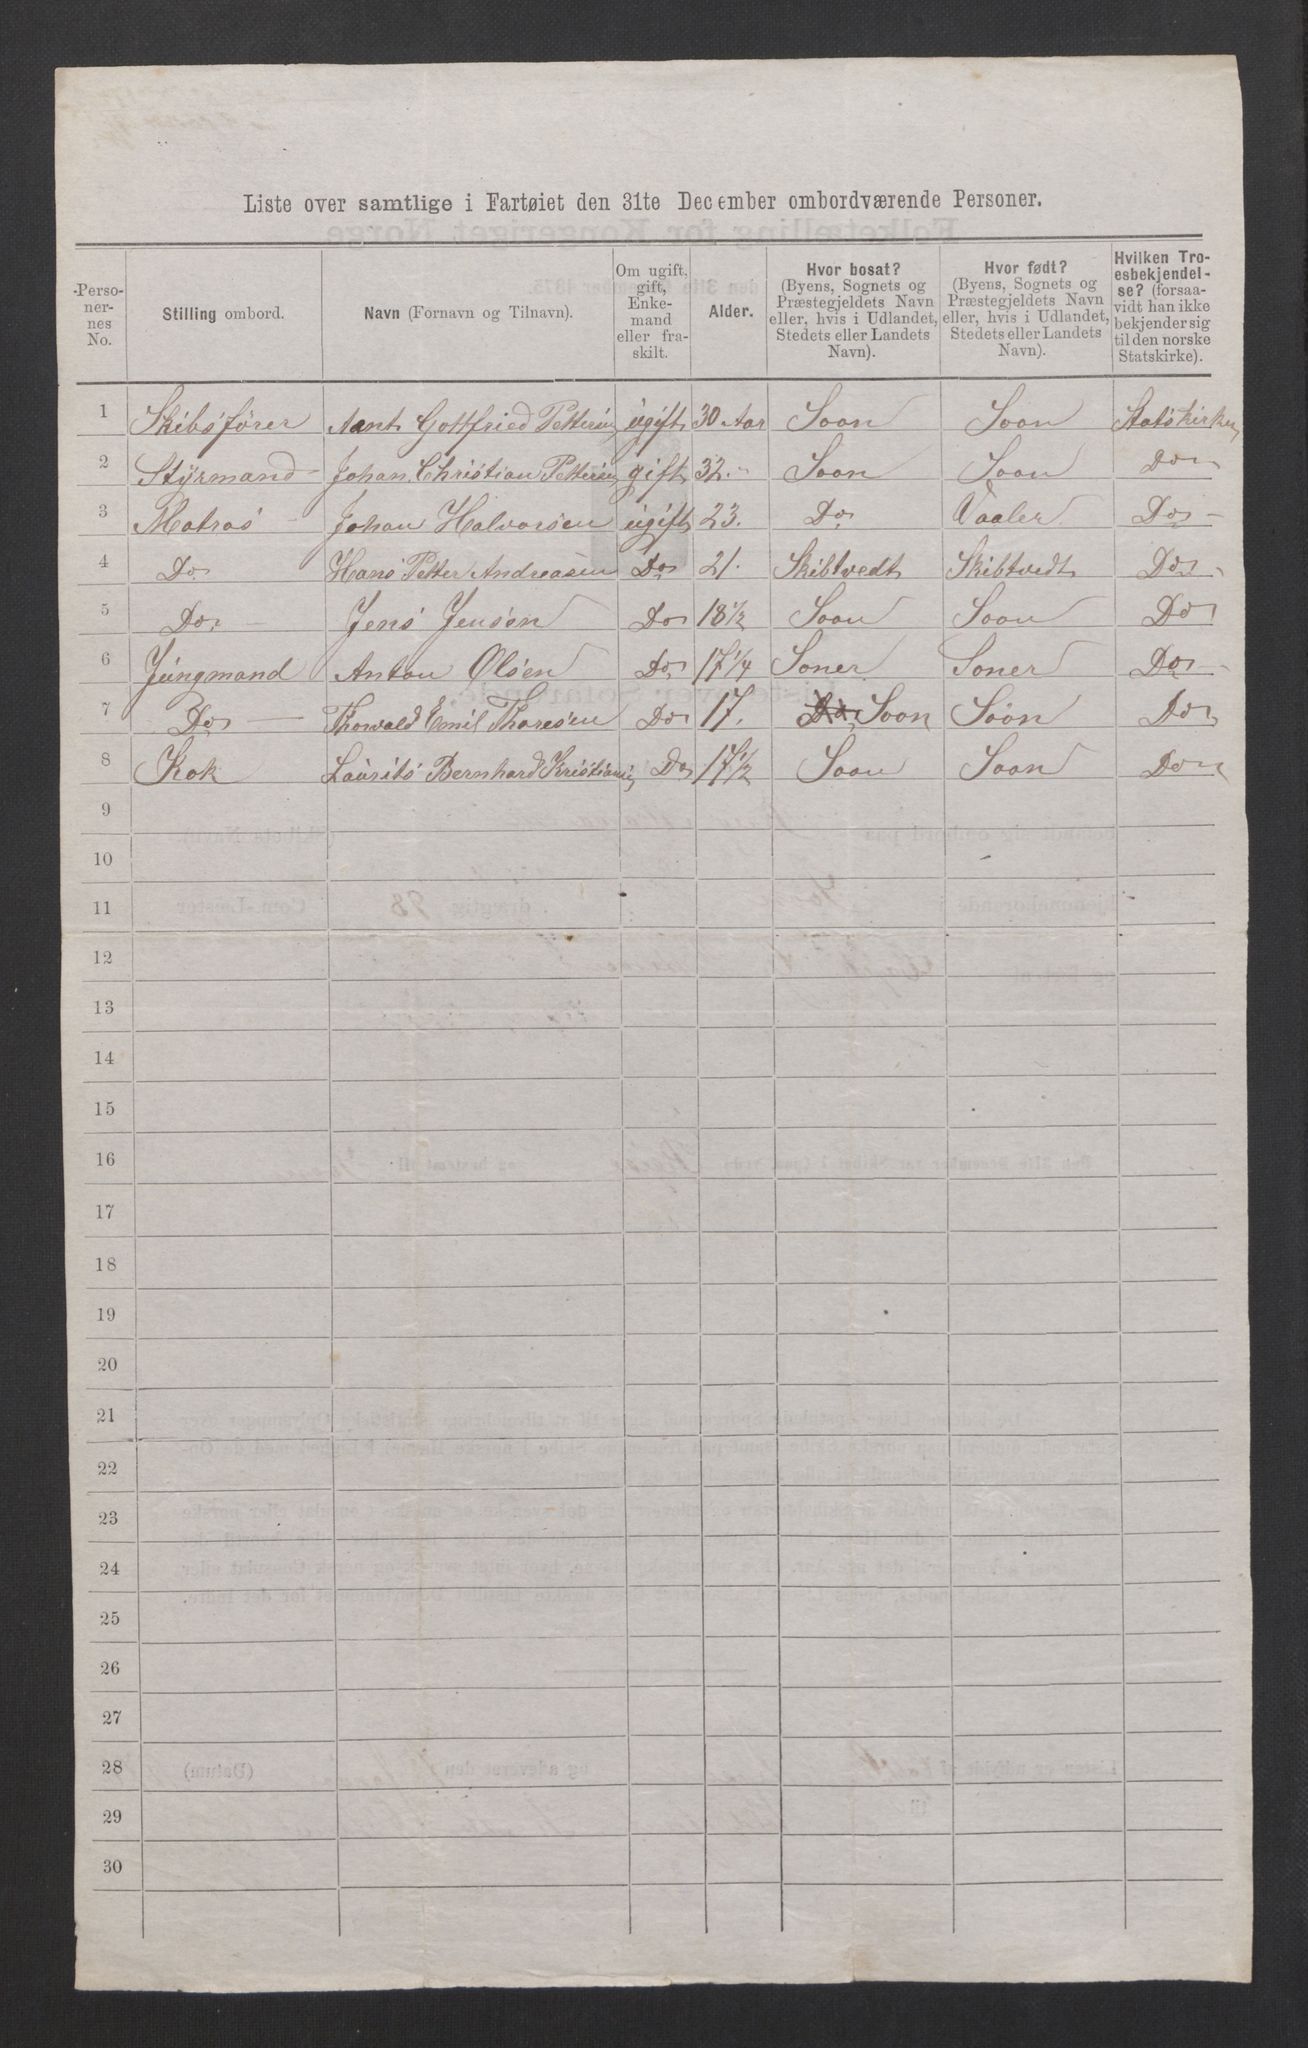 Liste over samtlige i Fartøiet den 31te December ombordværende Personer.
Perso-
ner-
nes
No.
Stilling ombord.
Navn (Fornavn og Tilnavn).
Om ugift,
gift,
Enke-
mand
eller fra-
skilt.
Alder.
Hvor bosat?
(Byens, Sognets og
Præstegjeldets Navn
eller, hvis i Udlandet,
Stedets eller Landets
Navn).
Hvor født?
(Byens, Sognets og
Præstegjeldets Navn
eller, hvis i Udlandet,
Stedets eller Landets
Navn).
Hvilken Tro-
esbekjendel-
se? (forsaa-
vidt han ikke
bekjender sig
til den norske
Statskirke).
1 Skibsfører Gottfried Pettersen ugift 30 Aar Soon Soon Statskirken
2 Styrmand Johan Christian Pettersen gift 32. Soon Soon Do
3 Matros Johan Halvorsen ugift 23. Do Vaaler Do
4 Do Hans Petter Andreasen Do 21. Skibtvedt Skibtvedt Do
5 Do Jens Jensen Do 18½ Soon Soon Do
6 Jungmand Anton Olsen Do 17¼ Soner Soner Do
7 Do Thorvald Emil Thoresen Do 17. Do Soon Soon Do
8 Kok Laurits Bernhard Kristiansen Do 17½ Soon Soon Do
9
10
11
12
13
14
15
16
17
18
19
20
21
22
23
24
25
26
27
28
29
30